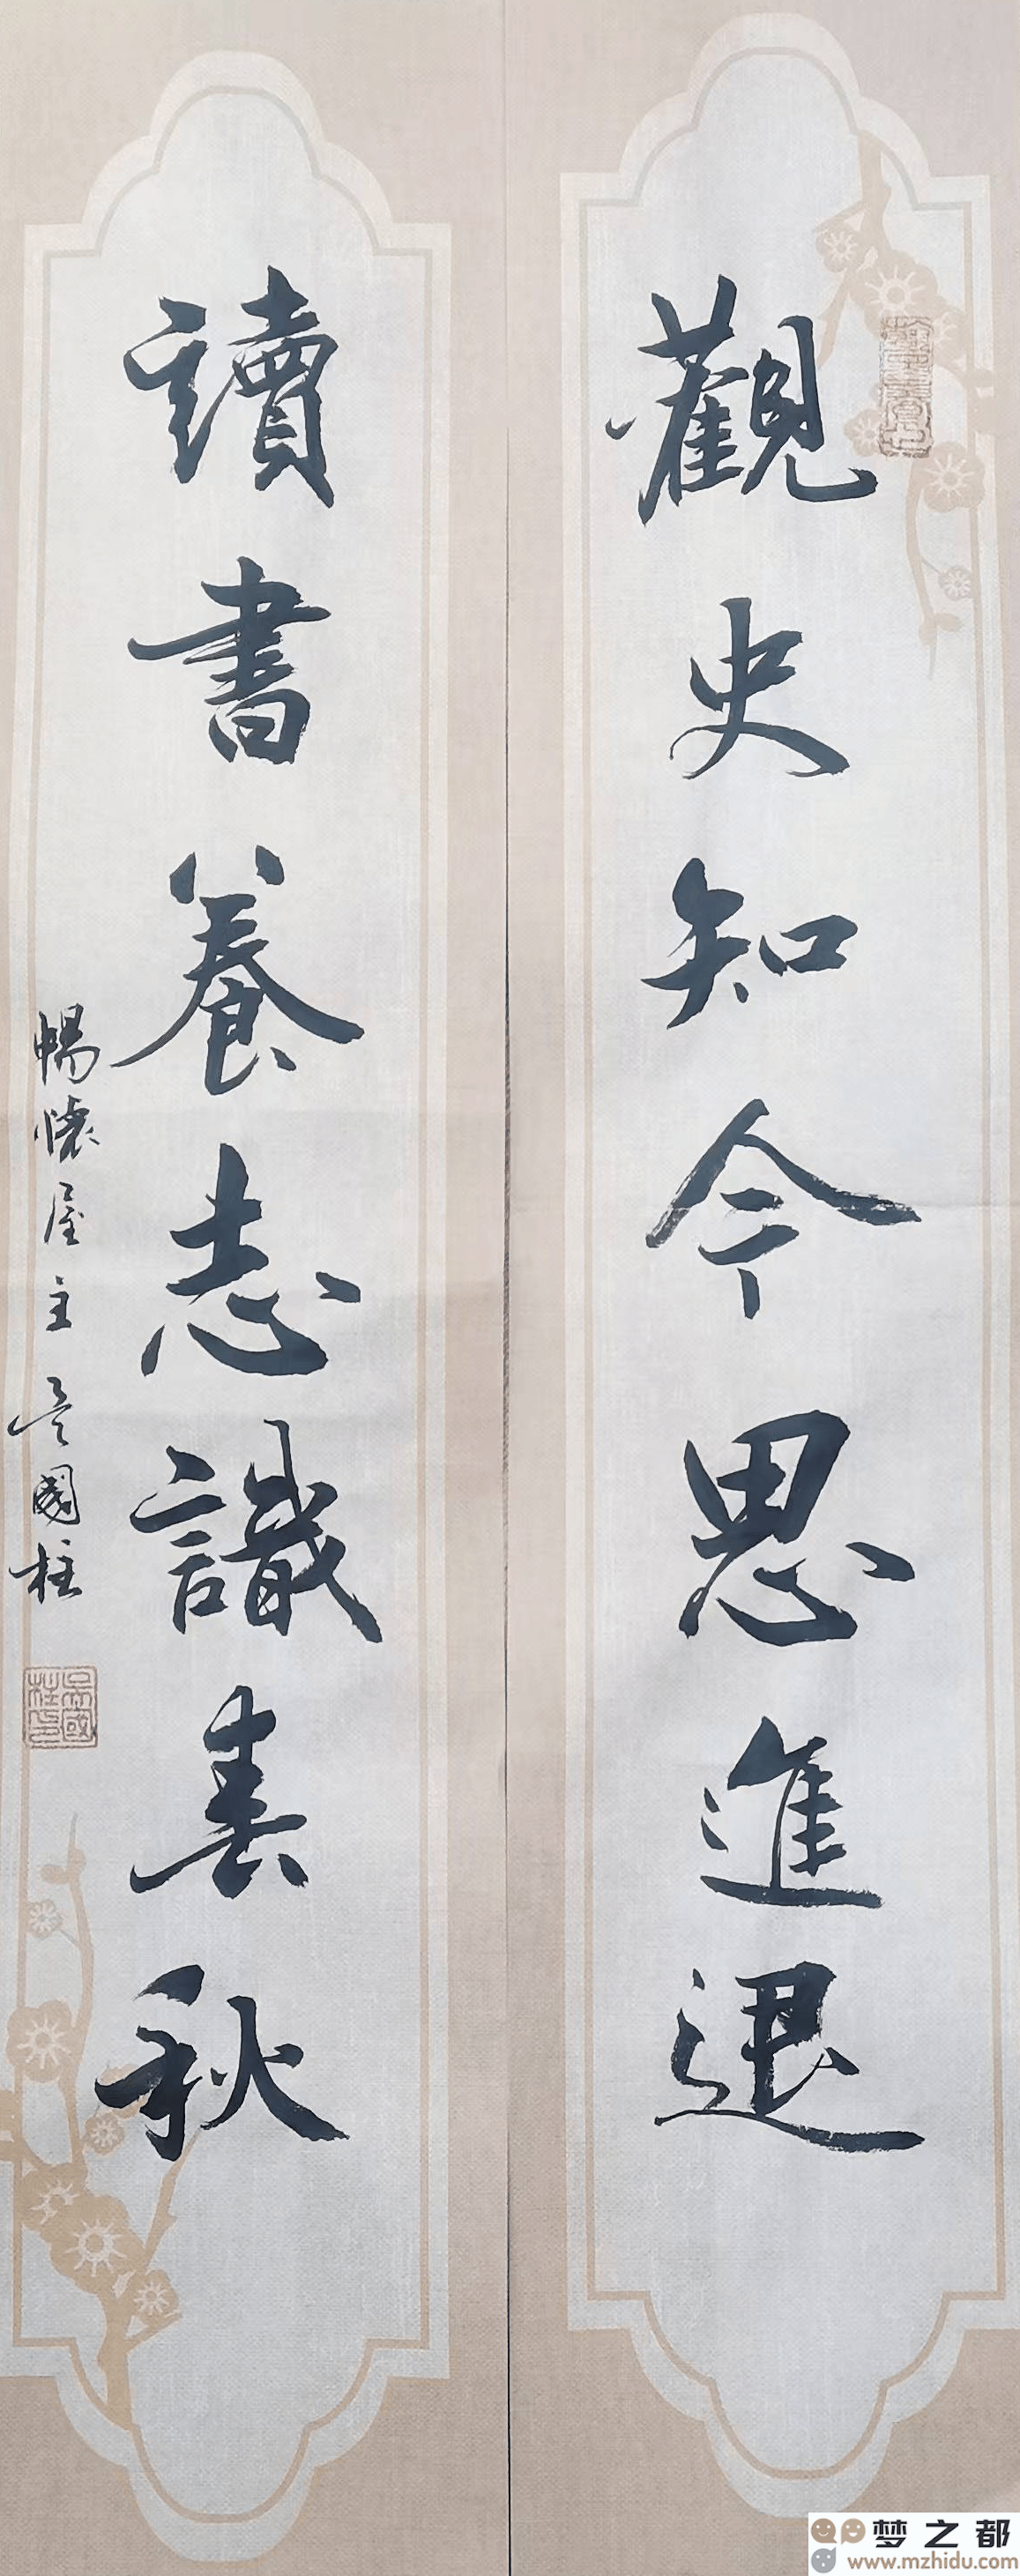 觀史知今思進退
讀書養志識春秋
暢懷屋主吳國柱
吳國柱印
梦之都
www.mzhidu.com